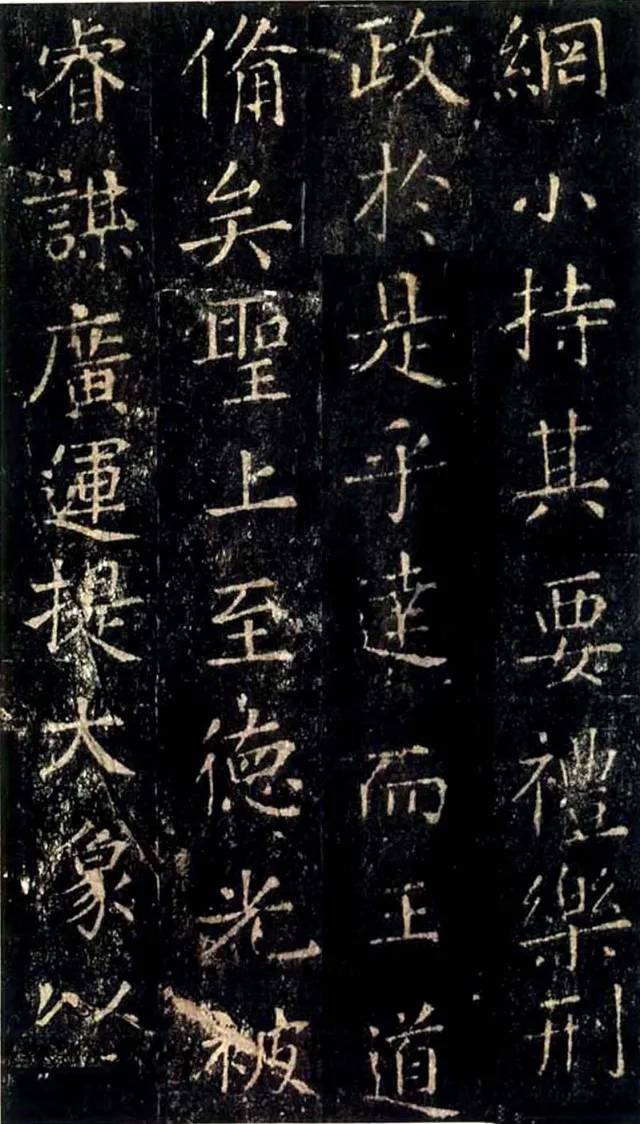 網小持其要禮樂刑
政於是乎達而王道
備矣聖上至德光被
睿謀廣運提大象以